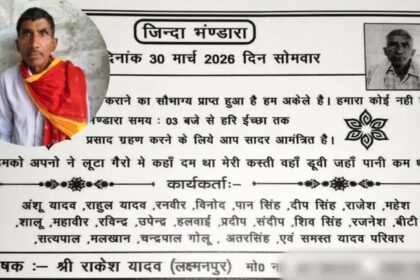 जिन्दा भंडारा
दिनांक 30 मार्च 2026 दिन सोमवार
कराने का सौभाग्य प्राप्त हुआ है हम अकेले है। हमारा कोई नही
भण्डारा समय : 03 बजे से हरि ईच्छा तक
प्रसाद ग्रहण करने के लिये आप सादर आमंत्रित है।
हमको अपनो ने लूटा गैरो मे कहाँ दम था मेरी कस्ती वहाँ डूवी जहाँ पानी कम थ
कार्यकर्ता:-
अंशू यादव, राहुल यादव, रनवीर, विनोद, पान सिंह, दीप सिंह, राजेश, महेश
शालू, महावीर, रविन्द्र, उपेन्द्र, हलवाई, प्रदीप, संदीप, शिव सिंह, रजनेश, बीटी
सत्यपाल, मलखान, चन्द्रपाल गोलू, अतरसिंह, एवं समस्त यादव परिवार
षक :- श्री राकेश यादव (लक्ष्मनपुर) मो0